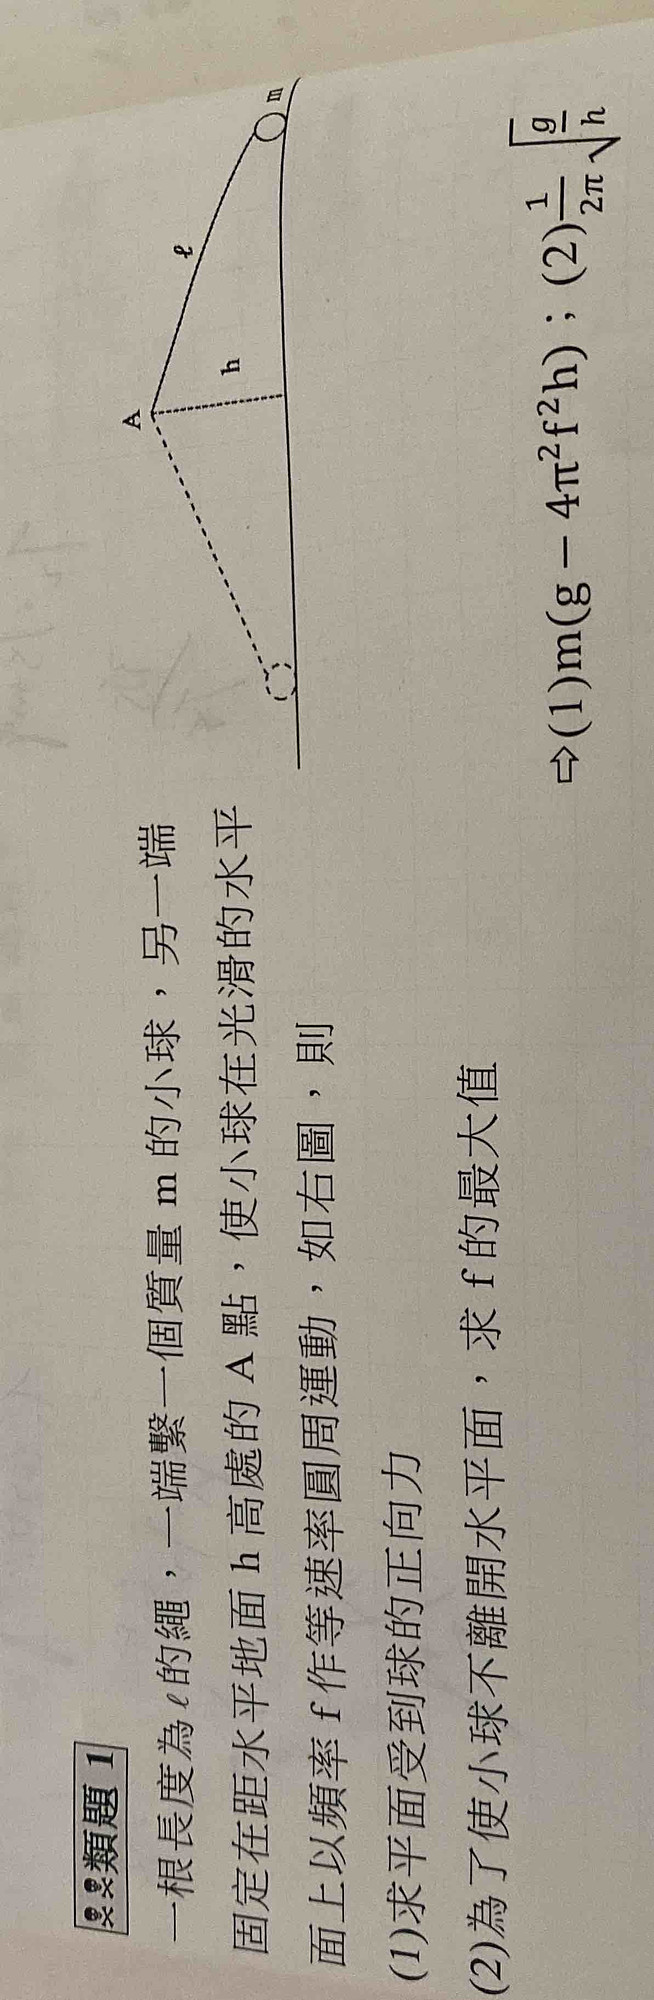 類題 1
一根長度為ℓ的繩，一端繫一個質量 m 的小球，另一端
固定在距水平地面 h 高處的 A 點，使小球在光滑的水平
面上以頻率 f 作等速率圓周運動，如右圖，則
(1)求平面受到球的正向力
(2)為了使小球不離開水平面，求 f 的最大值
A
ℓ
h
m
⇨(1)m(g − 4π²f²h)；(2)1/2π √g/h